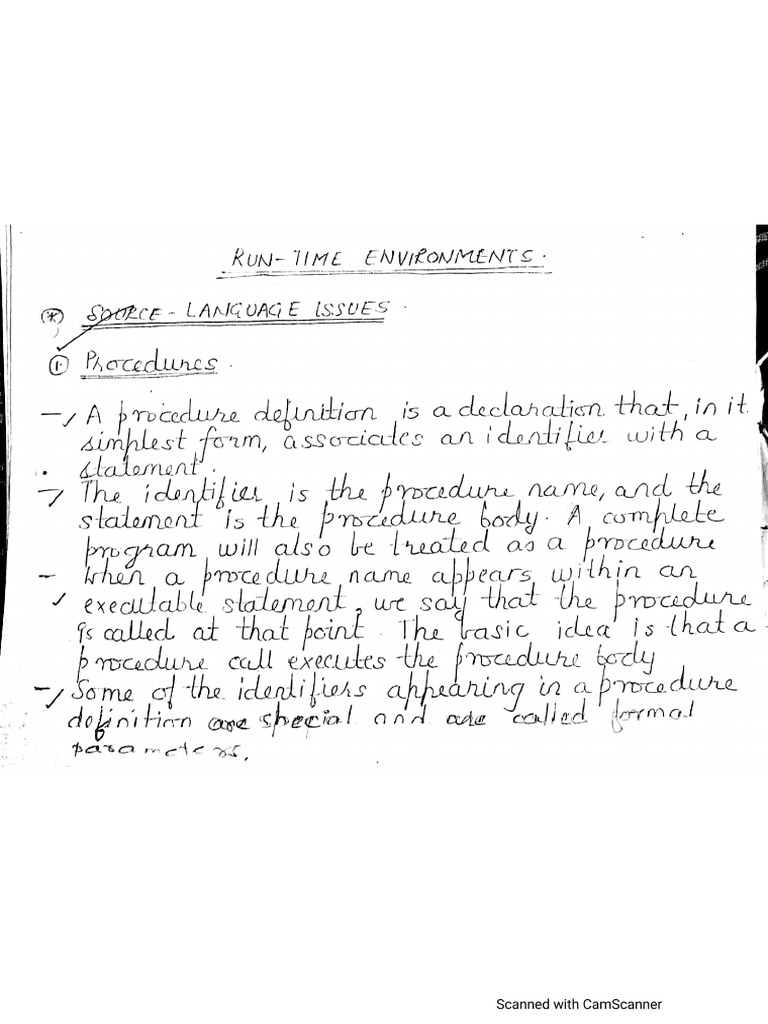 RUN-TIME ENVIRONMENTS.
(*) SOURCE-LANGUAGE ISSUES.
1. Procedures.
→ A procedure definition is a declaration that, in it
simplest form, associates an identifier with a
statement.
→ The identifier is the procedure name, and the
statement is the procedure body. A complete
program will also be treated as a procedure
- When a procedure name appears within an
✓ executable statement, we say that the procedure
is called at that point. The basic idea is that a
procedure call executes the procedure body
→ Some of the identifiers appearing in a procedure
definition are special and are called formal
parameters.
Scanned with CamScanner